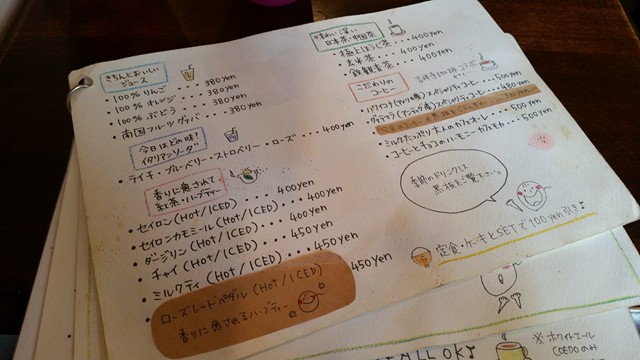 きちんとおいしい
ジュース
・100%りんご・・・380yen
・100%オレンジ・・・380yen
・100%ぶどう・・・380yen
・南国フルーツグァバ・・・380yen
今日はどの味!
イタリアンソーダ
・ライチ・ブルーベリー・ストロベリー・ローズ・・・400yen
香りに癒されて
紅茶・ハーブティー
・セイロン(HOT/ICED)・・・400yen
・セイロンカモミール(HOT/ICED)・・・400yen
・ダージリン(HOT/ICED)・・・400yen
・チャイ(HOT/ICED)・・・450yen
・ミルクティ(HOT/ICED)・・・450yen
450yen
ローズレッドペダル(HOT/ICED)
香りに癒されるハーブティー
味わい深い
日本茶・中国茶
・極上ほうじ茶・・・400yen
・玄米茶・・・400yen
・鉄観音茶・・・400yen
こだわりの
コーヒー
スペシャリティコーヒー・・・500yen
スペシャリティコーヒー・・・480yen
・ミルクたっぷり大人のカフェオーレ・・・500yen
・コーヒーとチョコのハーモニーカフェモカ・・・500yen
季節のドリンクは
黒板をご覧下さい。
定食・ケーキとSETで100yen引き♪
ALL OK♪
※ホワイトエール
COEDOのみ